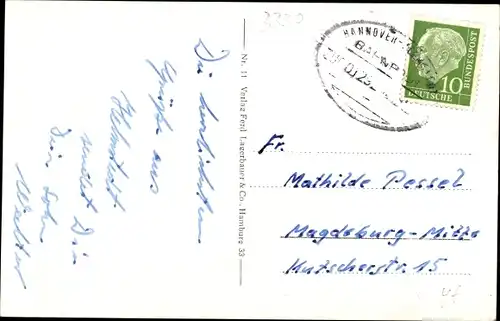 3330
Die herlichsten
Grüße aus
Helmstedt
sendet Dir
Dein Sohn
Walter
Nr. 11 Verlag Ferd. Lagerbauer & Co., Hamburg 33
HANNOVER-
BAHNPOST
DEUTSCHE
BUNDESPOST
10
Fr.
Mathilde Pessel
Magdeburg-Mitte
Kutscherstr. 15